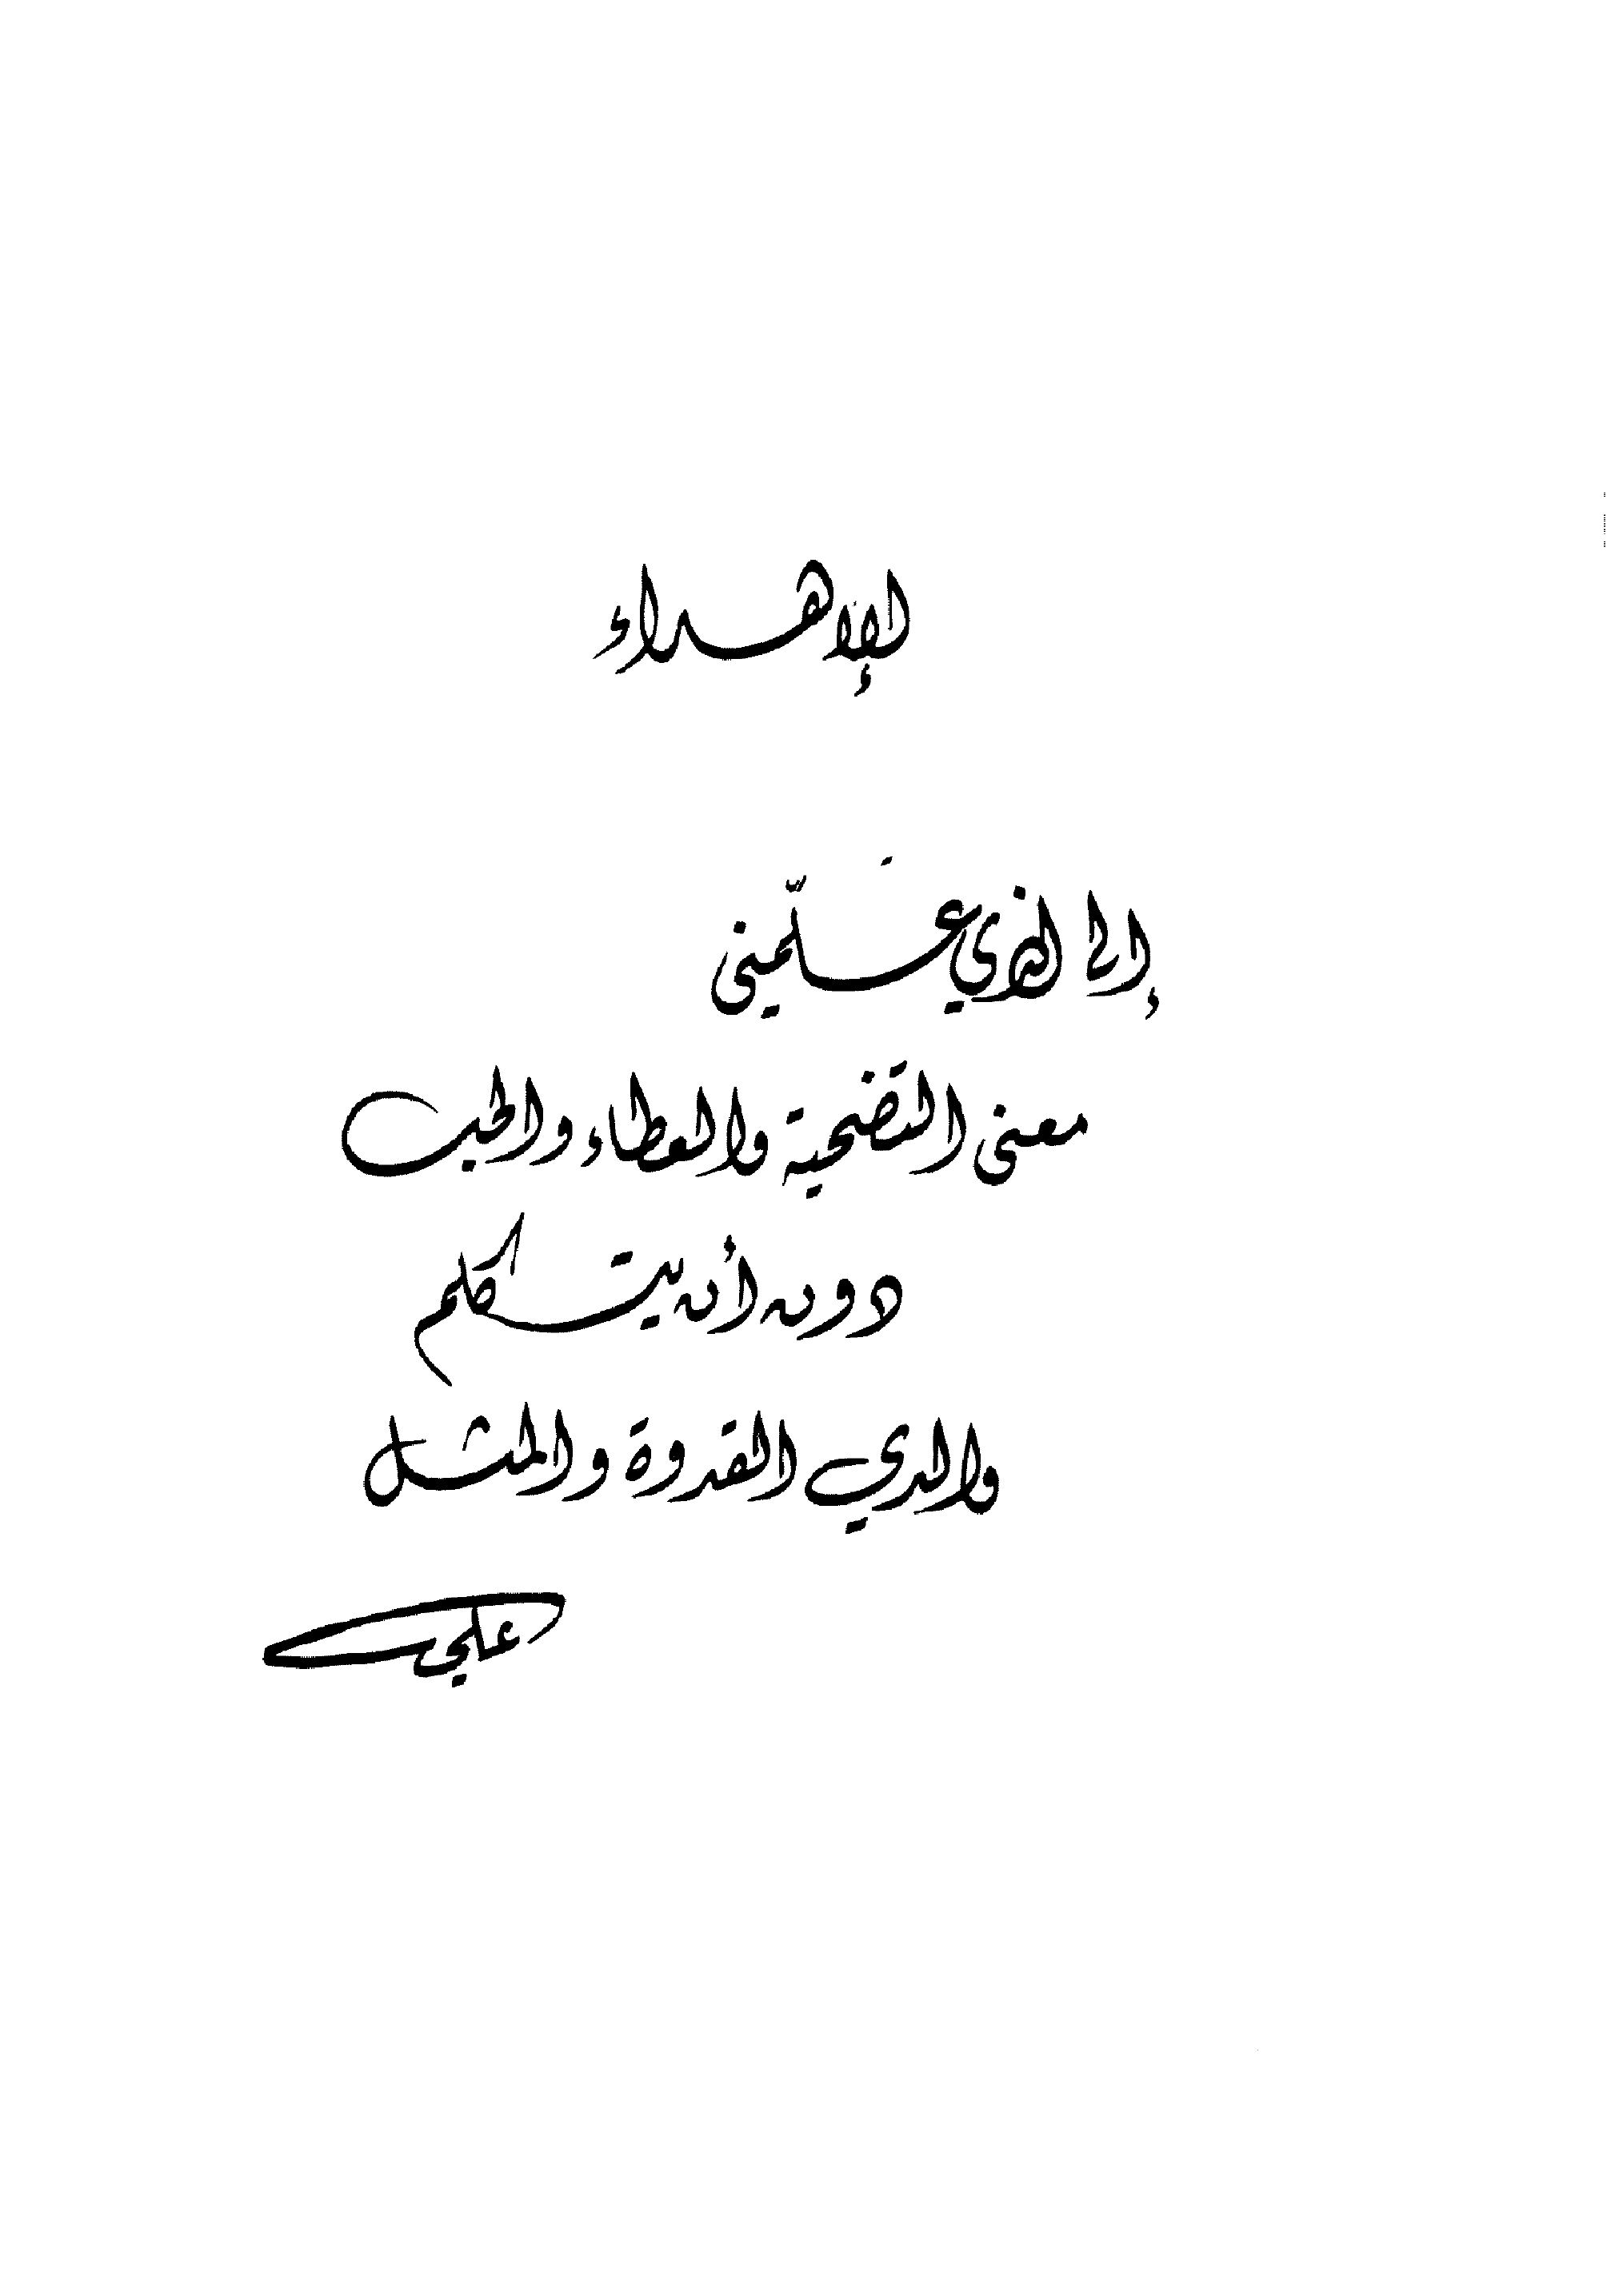 الإهداء
إلى الذي علّمني
معنى التضحية والعطاء والحب
دون أن يتكلم
والدي القدوة والمثل
علي